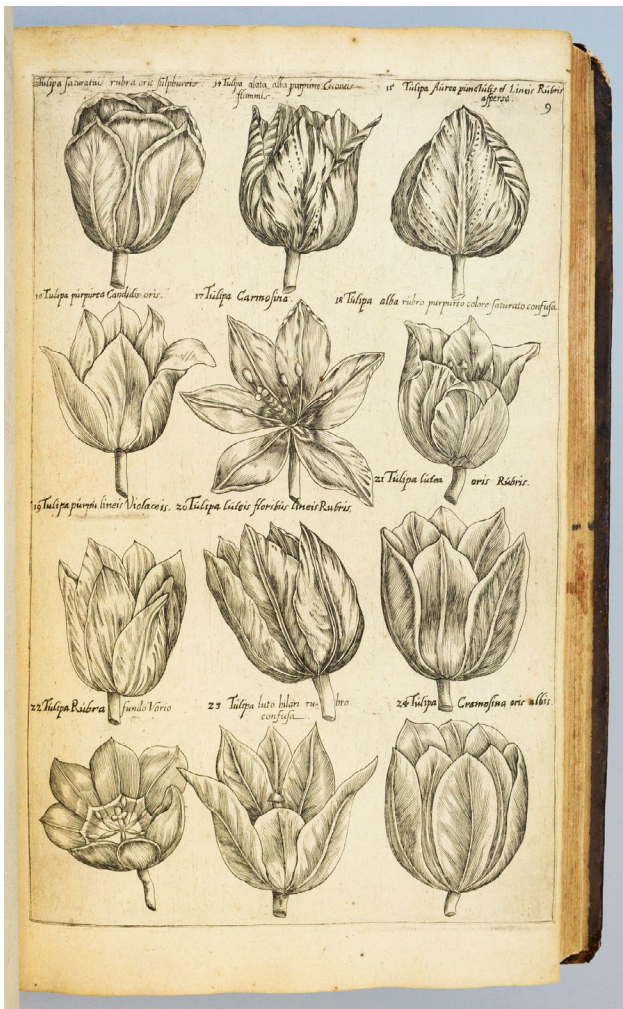 Tulipa saturatius rubra oris sulphureis
14 Tulipa alata alba purpureo
flammis.
15 Tulipa Aurea punctulis et Lineis Rubris
asperso.
9
16 Tulipa purpurea Candidis oris.
17 Tulipa Carmosina.
18 Tulipa alba rubro purpureo colore saturato confusa
19 Tulipa lineis Violaceis.
20 Tulipa luteis floribus lineis Rubris.
21 Tulipa lutea oris Rubris.
22 Tulipa Rubra fundo Vario
23 Tulipa luto hilari rubro
confusa
24 Tulipa Cramosina oris albis